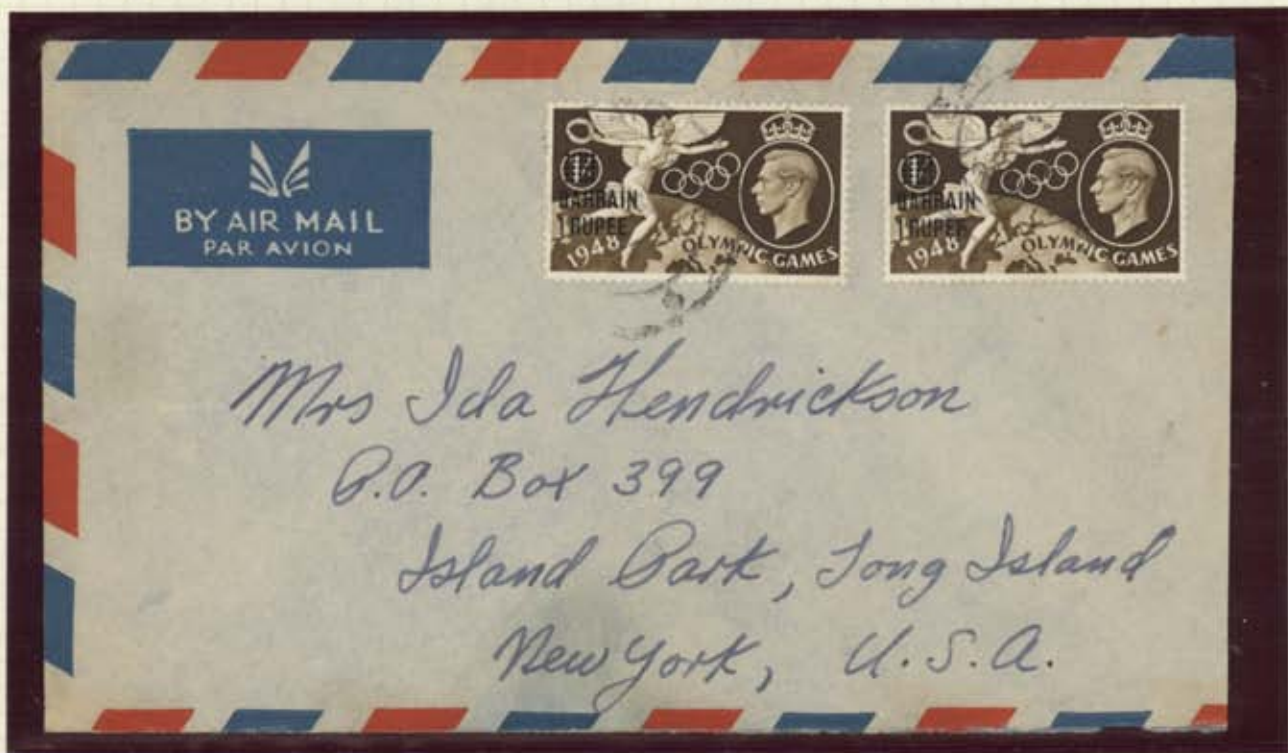 BY AIR MAIL
PAR AVION
BAHRAIN
1 RUPEE
1948 OLYMPIC GAMES
BAHRAIN
1 RUPEE
1948 OLYMPIC GAMES
Mrs Ida Hendrickson
P.O. Box 399
Island Park, Long Island
New York, U.S.A.